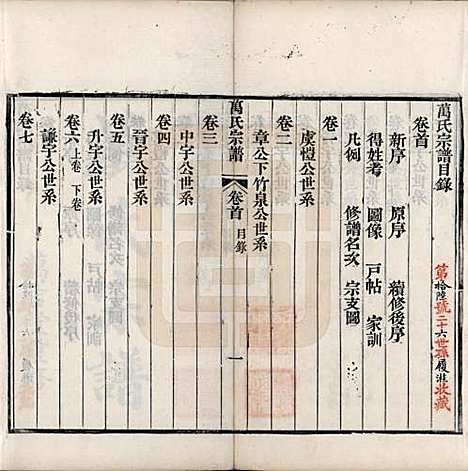 萬氏宗譜目錄
第拾陸號二十六世孫履淮收藏
卷首
新序 原序 續修後序
得姓考 圖像 戶帖 家訓
凡例 修譜名次 宗支圖
卷一
虔愷公世系
卷二
章公下竹泉公世系
萬氏宗譜 卷首 目錄 一
卷三
中字公世系
卷四
晉字公世系
卷五
升字公世系
卷六 上卷 下卷
謙字公世系
卷七